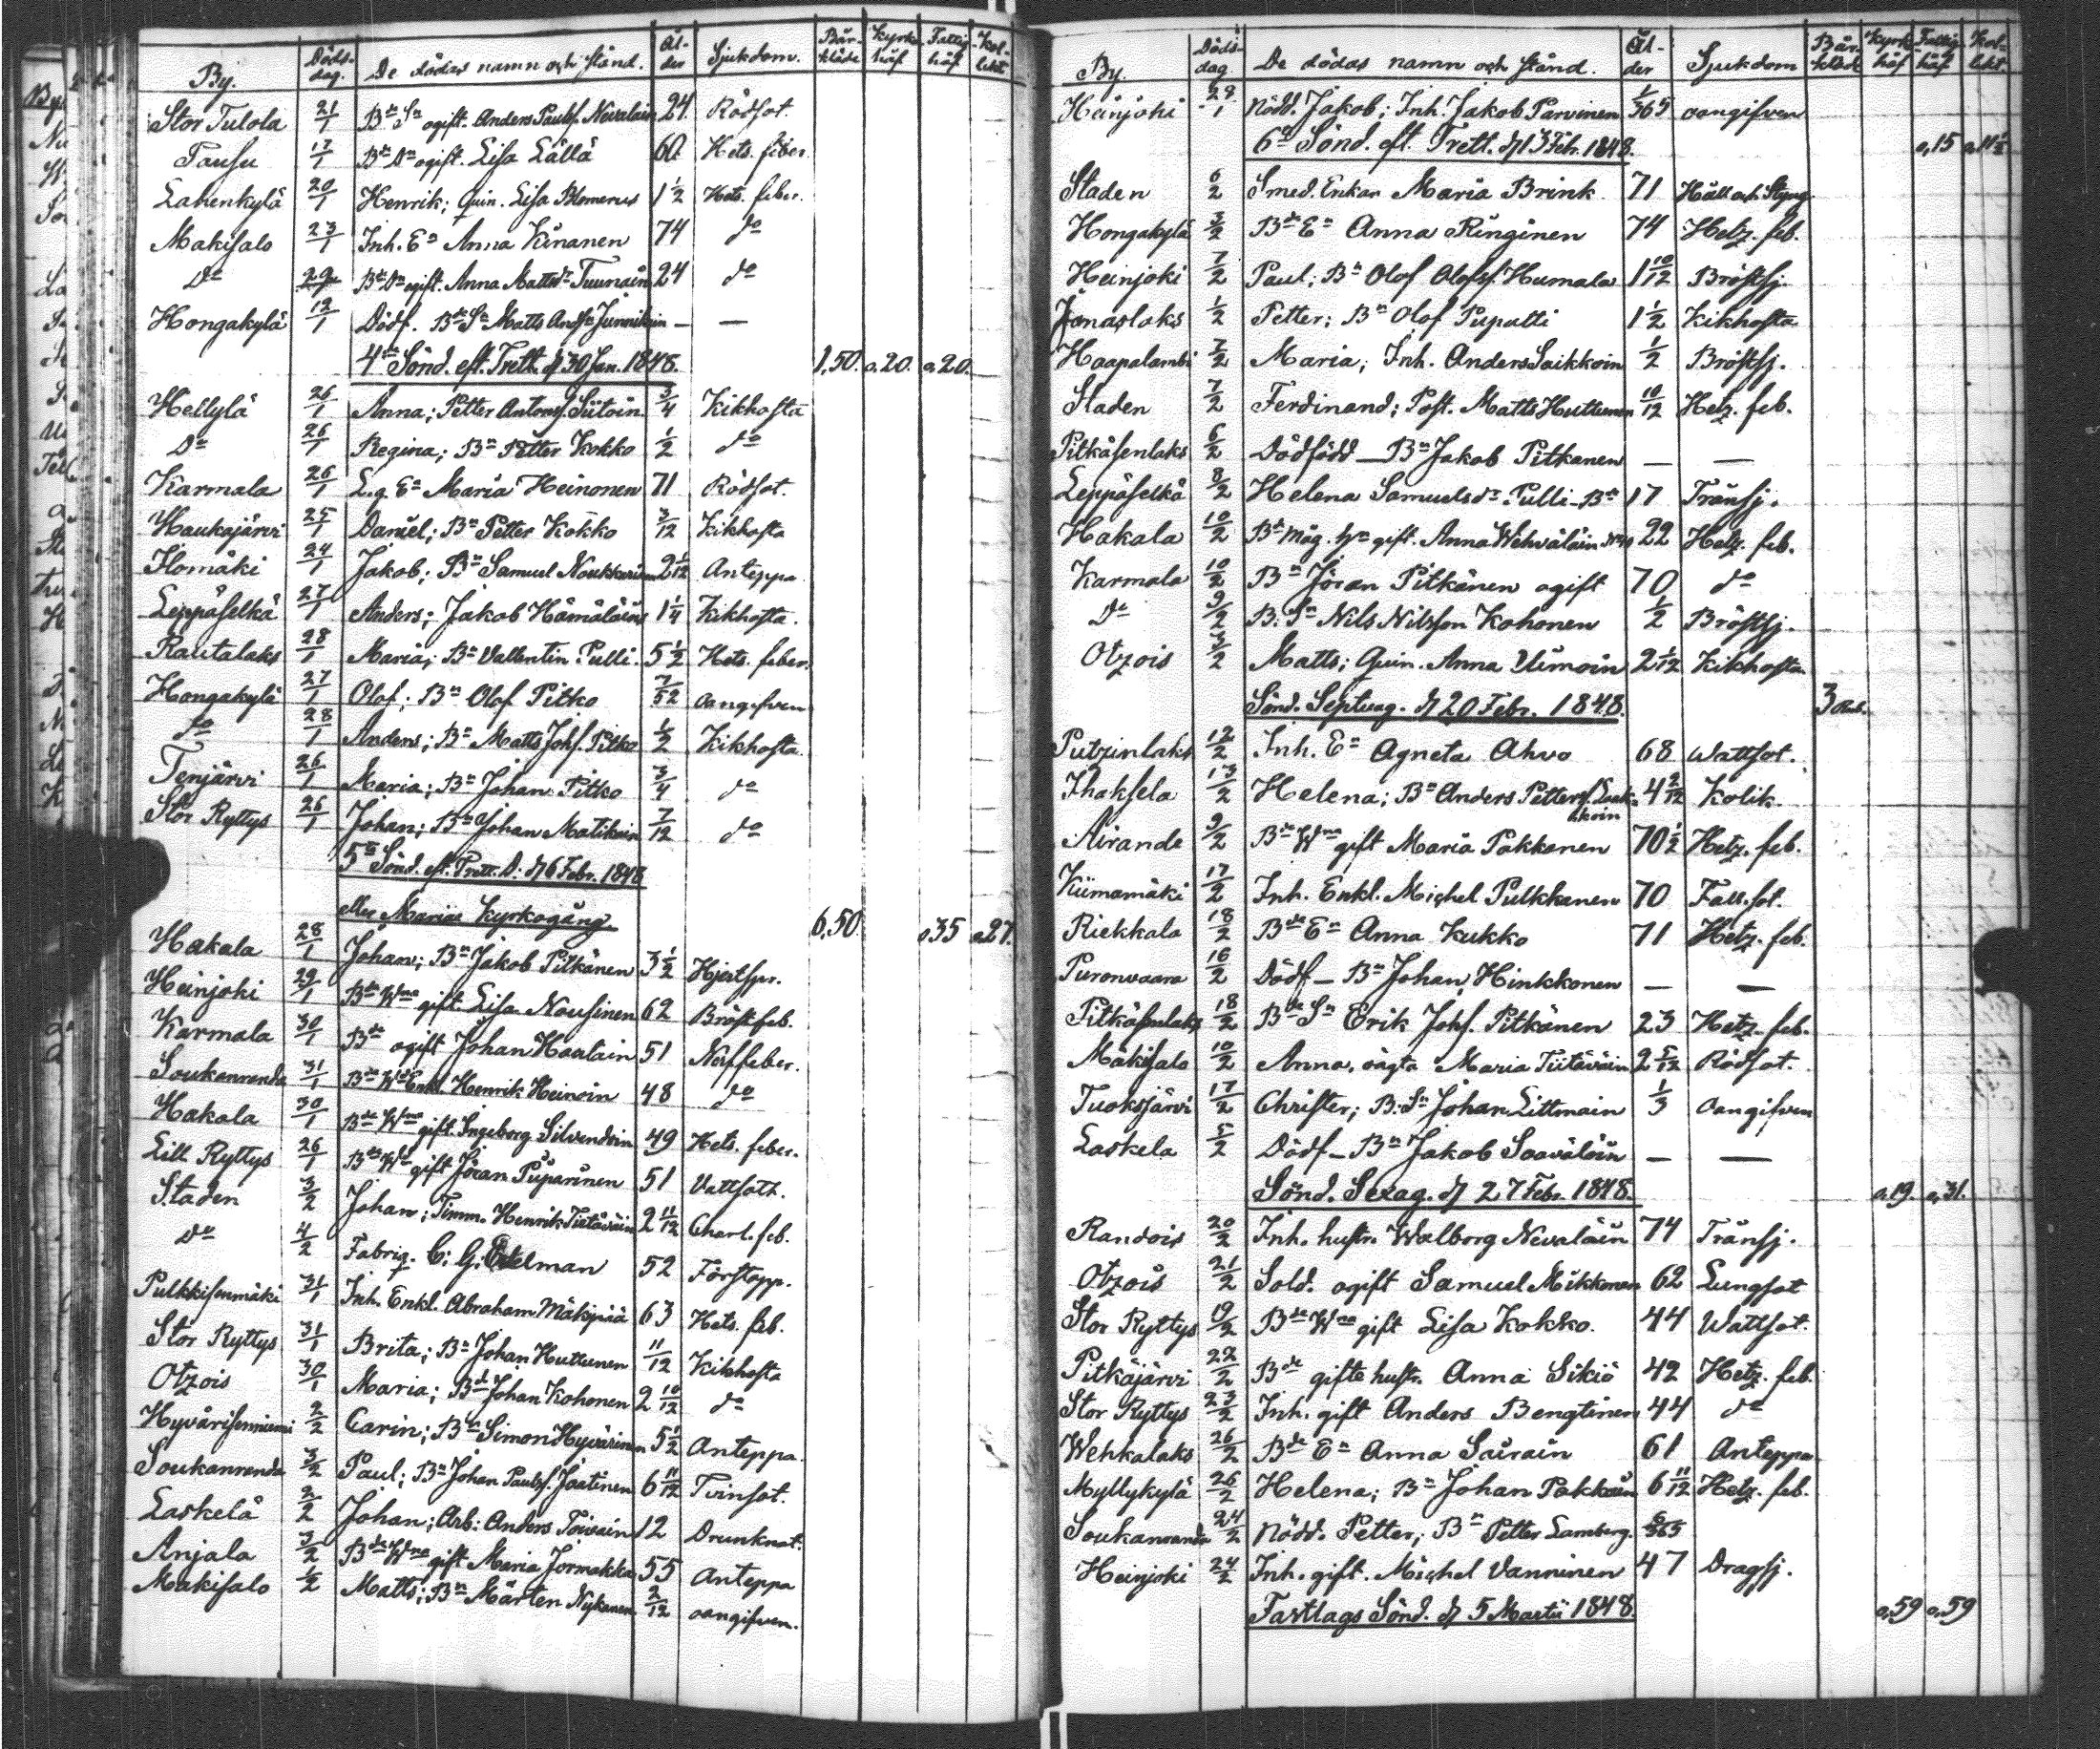 By. Döds- dag. De dödas namn och stånd. Ål- der Sjukdom. Bår- kläde Kyrko håf Fattig håf Kol- lekt
Stor Tulola 21/1 Bde Sn ogift. Anders Paulss. Nevalain 24. Rödsot.
Tausu 17/1 Bde Dn ogift. Lisa Lällä 60. Hets. feber
Lahenkylä 20/1 Henrik; Quin. Lisa Blomerus 1 1/2 Hets. feber.
Makisalo 23/1 Inh. En Anna Kinanen 74 do
Do 29/1 Bde Dn ogift. Anna Mattsdr Tuunain 24 do
Hongakylä 12/1 Dödf. Bde Sn Matts Andrs Junnikain — —
4de Sönd. eft. Trett. d 30 Jan. 1848. 1,50. o.20. o.20.
Hellylä 26/1 Anna; Petter Antonss. Siitoin 3/4 Kikhosta
Do 26/1 Regina; Bn Petter Kokko 1/2 do
Karmala 26/1 L.g. En Maria Heinonen 71 Rödsot.
Haukajärvi 25/1 Daniel; Bn Petter Kokko 3/12 Kikhosta
Ilomäki 24/1 Jakob; Bn Samuel 2 1/12 Anteppa
Leppäselkä 27/1 Anders; Jakob Hämäläins 1 1/4 Kikhosta.
Rautalaks 28/1 Maria; Bn Vallentin Pulli. 5 1/2 Hets. feber.
Hongakylä 27/1 Olof; Bn Olof Pitko 7/52 oangifven
do 28/1 Anders; Bn Matts Johs. Pitko 1/2 Kikhosta.
Tenjärvi 26/1 Maria; Bn Johan Pitko 3/4 do
Stor Ryttys 26/1 Johan; Bn Johan Matikain 7/12 do
5te Sönd. eft. Trett. D: d 6 Febr. 1848
eller Mariæ Kyrkogång. 6,50. o35 o27.
Hakala 28/1 Johan; Bn Jakob Pitkänen 3 1/2 Hjertspr.
Heinjoki 29/1 Bde Wna gift Lisa Nousinen 62 Bröstfeb.
Karmala 30/1 Bde ogift Johan Hautain 51 Nerffeber.
Soukanranda 31/1 Bde Wd Enkl. Henrik Heinoin 48 do
Hakala 30/1 Bde Wna gift. Ingeborg Silvendoin 49 Hets. feber.
Lill Ryttys 26/1 Bde Wd gift Jöran Puparinen 51 Vattsot.
Staden 3/2 Johan; Timm. Henrik Tiitäväin 2 11/12 Charl. feb.
do 4/2 Fabriq. C: G: 52 Förstopp.
Pulkkisenmäki 31/1 Inh. Enkl. Abraham Mäkipää 63 Hets. feb.
Stor Ryttys 31/1 Brita; Bn Johan Huttunen 11/12 Kikhosta
Otzois 30/1 Maria; Bde Johan Kohonen 2 10/12 do
Hyvärisenniemi 2/2 Carin; Bn Simon Hyvärinen 5 1/2 Anteppa.
Soukanranda 3/2 Paul; Bn Johan Paulss. Jaatinen 6 11/12 Tvinsot.
Laskelä 2/2 Johan; Arb: Anders Toivain 12 Drunknat.
Anjala 3/2 Bde Wna gift Maria Jormakka 55 Anteppa
Makisalo 1/2 Matts; Bn Mårten Nykanen 2/12 oangifven.
By. Döds- dag De dödas namn och stånd. Ål- der Sjukdom Bår- kläde Kyrk håf Fattig håf Kol- lekt.
Heinjoki 28/1 Nödd. Jakob; Inh. Jakob Parvinen 1/365 oangifven
6te Sönd. eft. Trett. d 13 Febr. 1848. o,15 o.11 1/2
Staden 6/2 Smed. Enkan Maria Brink 71 Håll och Styng
Hongakylä 3/2 Bde En Anna Ringinen 74 Hetz. feb.
Heinjoki 7/2 Paul; Bn Olof Olofss. Humala 1 10/12 Bröstsj.
Jonaslaks 1/2 Petter; Bn Olof Puputti 1 1/2 Kikhosta
Haapalambi 7/2 Maria; Inh. Anders Saikkoin 1/2 Bröstsj.
Staden 7/2 Ferdinand; Post. Matts Huttunen 10/12 Hetz. feb.
Pitkäsenlaks 6/2 Dödfödd — Bn Jakob Pitkanen — —
Leppäselkä 8/2 Helena Samuelsdr Pulli — Bde 17 Trånsj.
Hakala 10/2 Bde Måg. hu gift. Anna Wehväläin 22 Hetz. feb.
Karmala 10/2 Bn Jöran Pitkänen ogift 70 do
Do 9/2 B: Sn Nils Nilsson Kohonen 1/2 Bröstsj.
Otzois 3/2 Matts; Quin. Anna Uimoin 2 1/12 Kikhosta
Sönd. Septuag. d 20 Febr. 1848. 3 Rub.
Putzinlaks 12/2 Inh. En Agneta Ahvo 68 Wattsot.
Ihaksela 13/2 Helena; Bn Anders Petterss. Laak-koin 4 2/12 Kolik.
Airanda 9/2 Bde Wna gift Maria Pakkanen 70 1/2 Hetz. feb.
Kiimamäki 17/2 Inh. Enkl. Michel Pulkkanen 70 Fall. sot.
Riekkala 18/2 Bde En Anna Kukko 71 Hetz. feb.
Puronvaara 16/2 Dödf — Bn Johan Hinkkonen — —
Pitkäsenlaks 18/2 Bde Sn Erik Johs. Pitkänen 23 Hetz. feb.
Mäkisalo 10/2 Anna, oägta Maria Tiitäväin 2 5/12 Rödsot.
Tuoksjärvi 17/2 Christer; B: Sn Johan Littmain 1/3 oangifven
Laskela 5/2 Dödf — Bn Jakob Saaväläin — —
Sönd. Sexag. d 27 Febr. 1848. o.19. o,31.
Randois 20/2 Inh. hustr. Walborg Nevaläin 74 Trånsj.
Otzois 21/2 Sold. ogift Samuel Mikkonen 62 Lungsot
Stor Ryttys 19/2 Bde Wna gift Lisa Kokko. 44 Wattsot.
Pitkäjärvi 22/2 Bde gifte hustr. Anna Sikiö 42 Hetz. feb.
Stor Ryttys 23/2 Inh. gift Anders Bengtinen 44 do
Wehkalaks 26/2 Bde En Anna Sairain 61 Anteppa
Myllykylä 26/2 Helena; Bn Johan Pakkain 6 11/12 Hetz. feb.
Soukanranda 24/2 Nödd. Petter; Bn Petter Lamberg. 6/365
Heinjoki 24/2 Inh. gift. Michel Vanninen 47 Dragsj.
Fastlags Sönd. d 5 Martii 1848. o,59 o,59